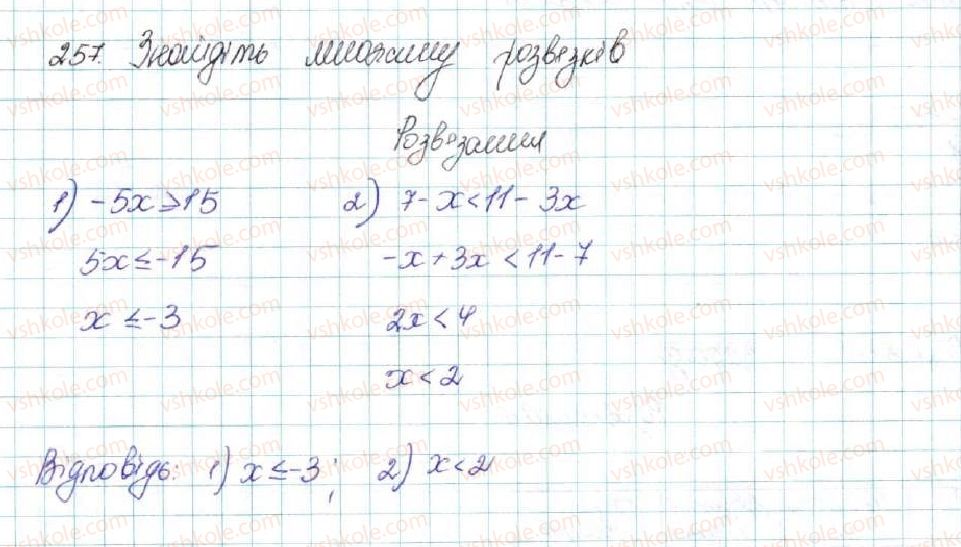 257. Знайдіть множину розвязків
Розвязання
1) -5x ≥ 15
5x ≤ -15
x ≤ -3
2) 7 - x < 11 - 3x
-x + 3x < 11 - 7
2x < 4
x < 2
Відповідь: 1) x ≤ -3; 2) x < 2